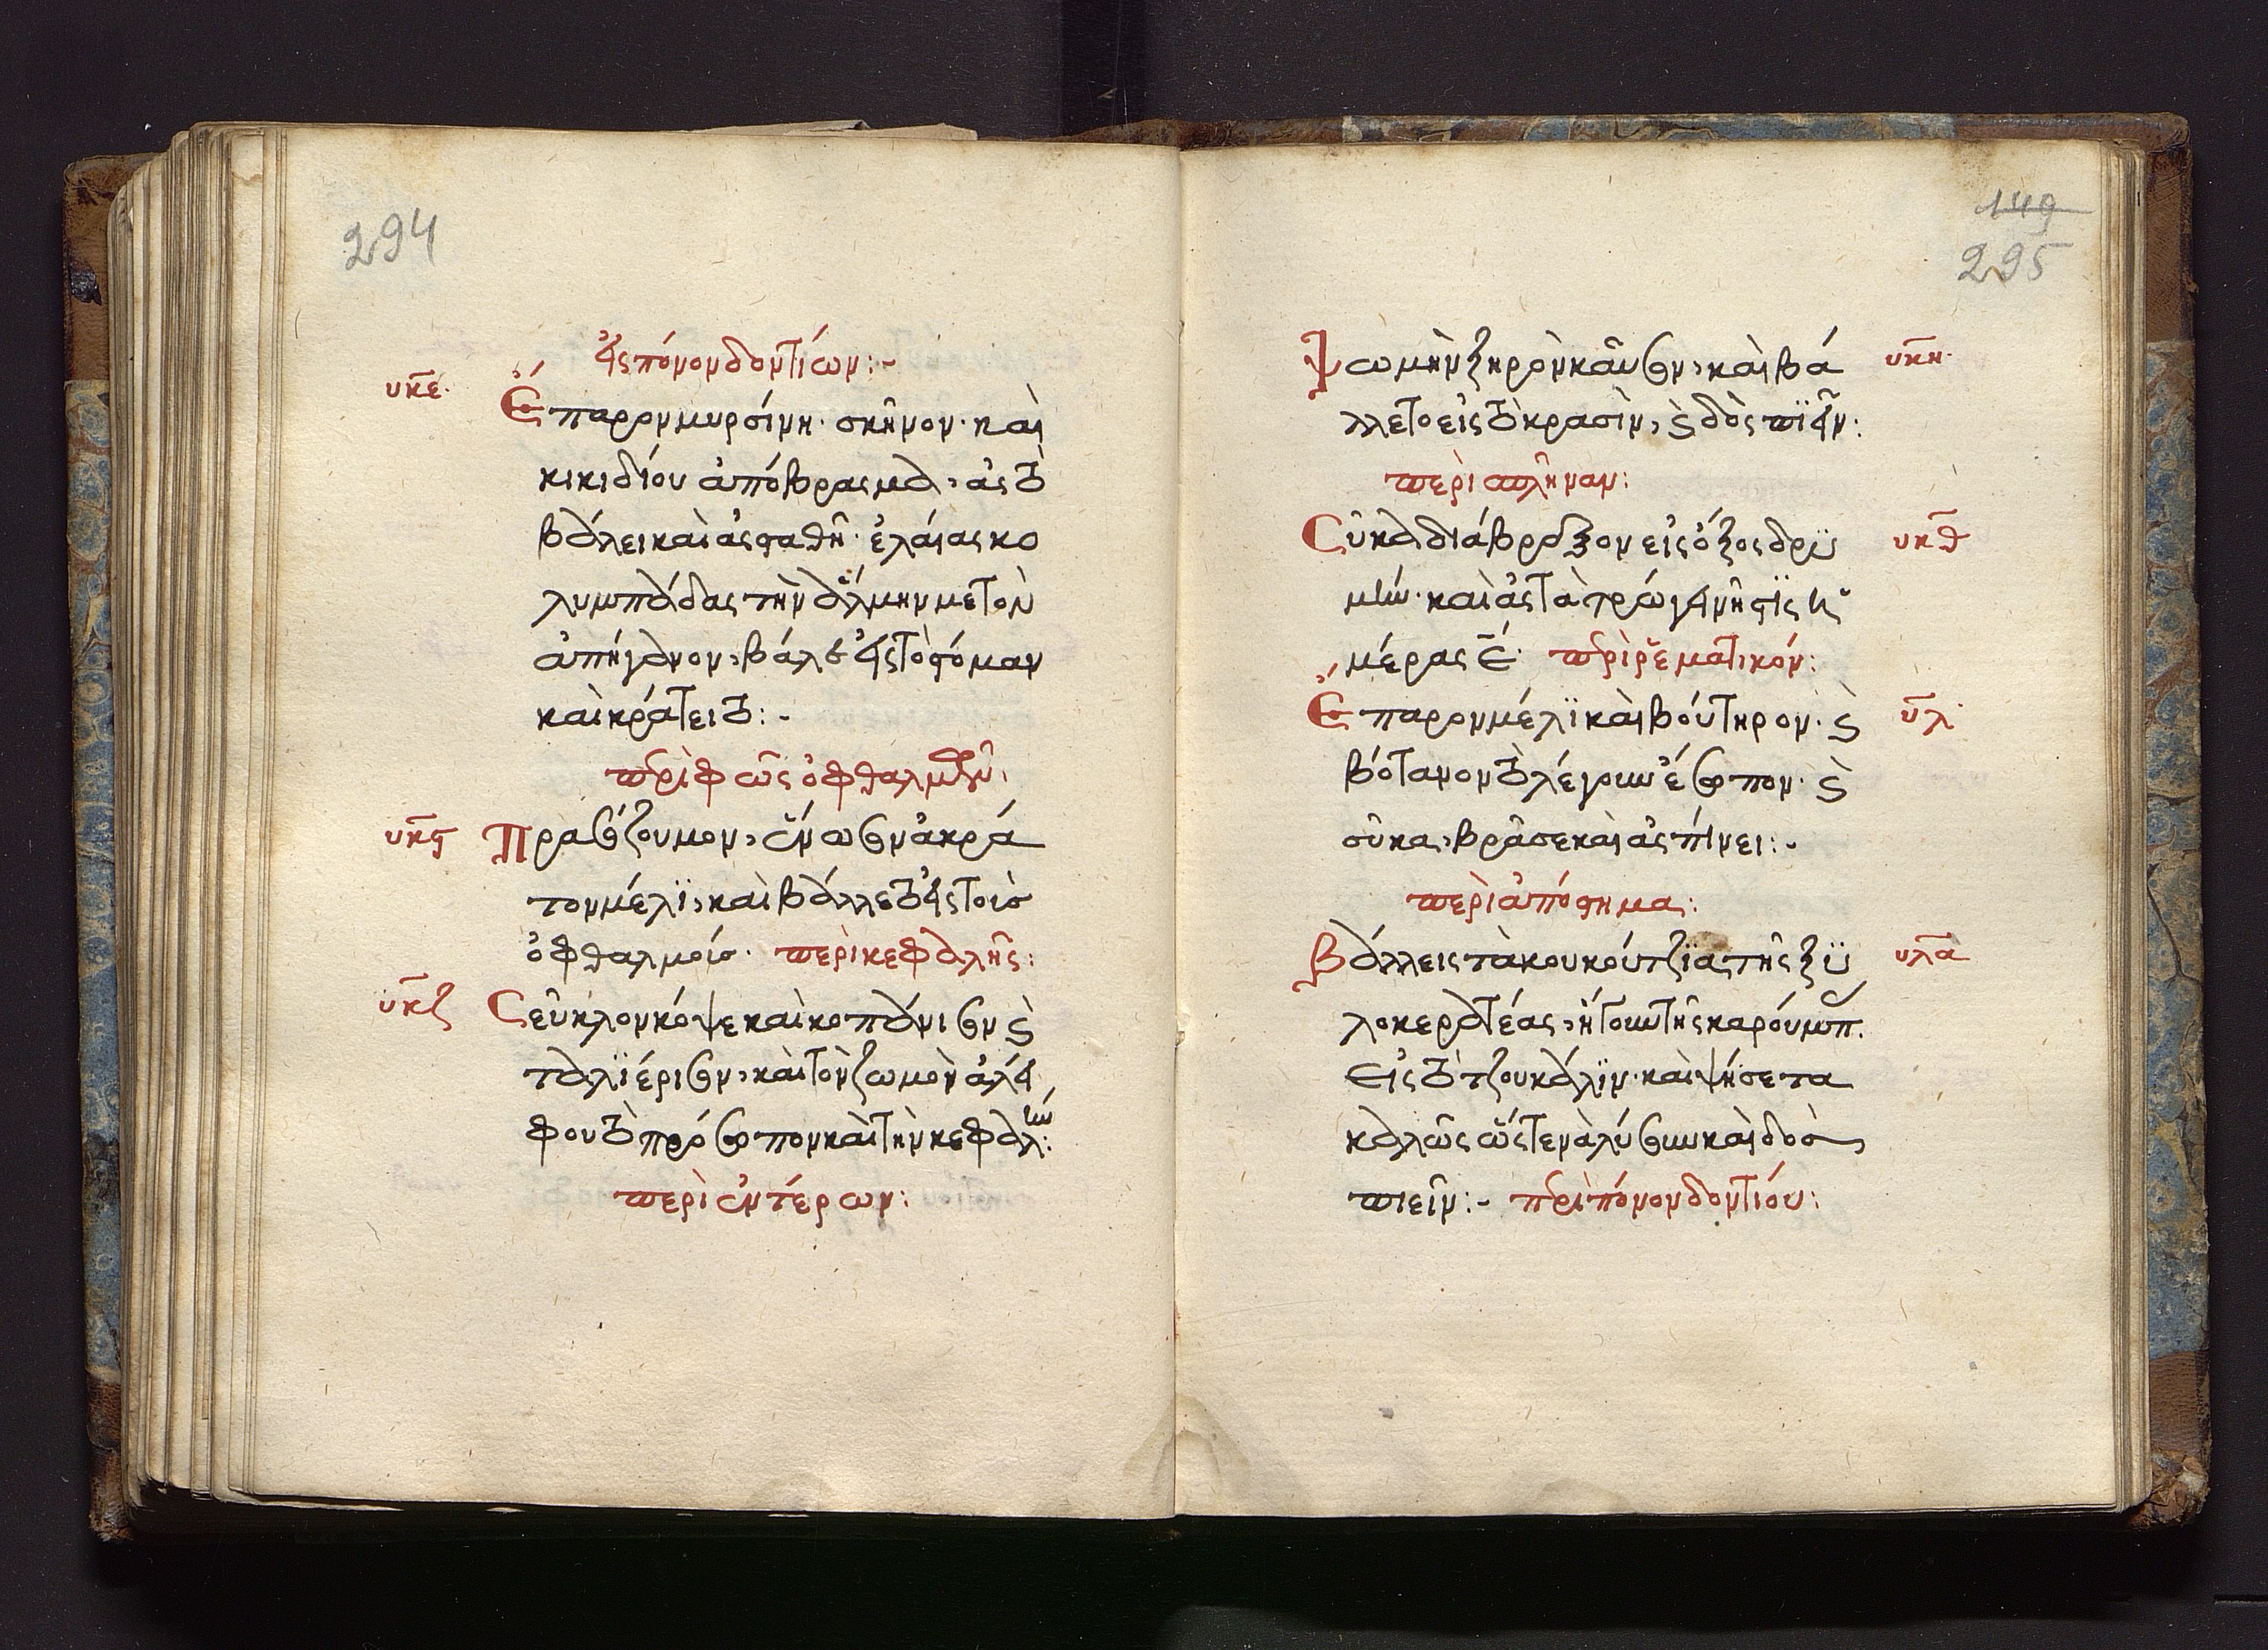 294
εἰς πόνον δοντίων:-
υκε.
Ἔπαρον μυρσίνη. σκῆνον. και
κικιδίου ἀπόβρασμα, ἀς τὸ
βάλει καὶ ἀς σταθῆ. ἐλάιας κο
λυμπάδας τὴν ἅλμην με τὸν
ἀπήγανον, βάλε εἰς τὸ στόμαν
καὶ κράτει το:-
περὶ φῶς ὀφθαλμῶν.
υκϛ
Πρασίζουμον, ἕνωσον ἀκρά
τον μέλϊ, καὶ βάλλε το εἰς τοὺσ
ὀφθαλμούσ. περὶ κεφαλῆς:
υκζ
Σεῦκλον κόψε καὶ κοπάνισον ϗ
ταλϊέρισον, καὶ τὸν ζωμὸν ἄλει
φου τὸ πρόσωπον καὶ τὴν κεφαλήν:
περὶ ἐντέρων:
149
295
Ψωμὴν ξηρὸν καῦσον, καὶ βά
υκη.
λλε το εἰς τὸ κρασὶν, ϗ δὸς πϊεῖν:
περὶ σπλῆναν:
Σῦκα διάβροξον εἰς ὄξος δρϋ
υκθ
μὴν. καὶ ἀς τὰ τρώγει νῆστϊς ἡ
μέρας ε. περὶ ῥεματικόν:
Ἔπαρον μέλϊ καὶ βούτηρον. ϗ
υλ
βότανον τὸ λέγουν ἔσωπον. ϗ
σῦκα, βρᾶσε καὶ ἀς πίνει:-
περὶ ἀπόστημα:
Βάλλεις τὰ κουκούτζϊα τῆς ξϋ
υλα
λοκερατέας, ἤτουν τῆς καρούμπ.
Εἰς τὸ τζουκάλϊν. καὶ ψήσε τα
καλῶς ὥστε νὰ λύσουν καὶ δὸσ
πιεῖν:- περὶ πόνον δοντίου: